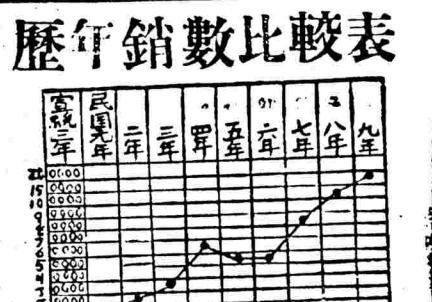 歷年銷數比較表
宣統三年 民国元年 二年 三年 四年 五年 六年 七年 八年 九年
0000
15 0000
10 0000
9 0000
8 0000
7 0000
6 0000
5 0000
4 0000